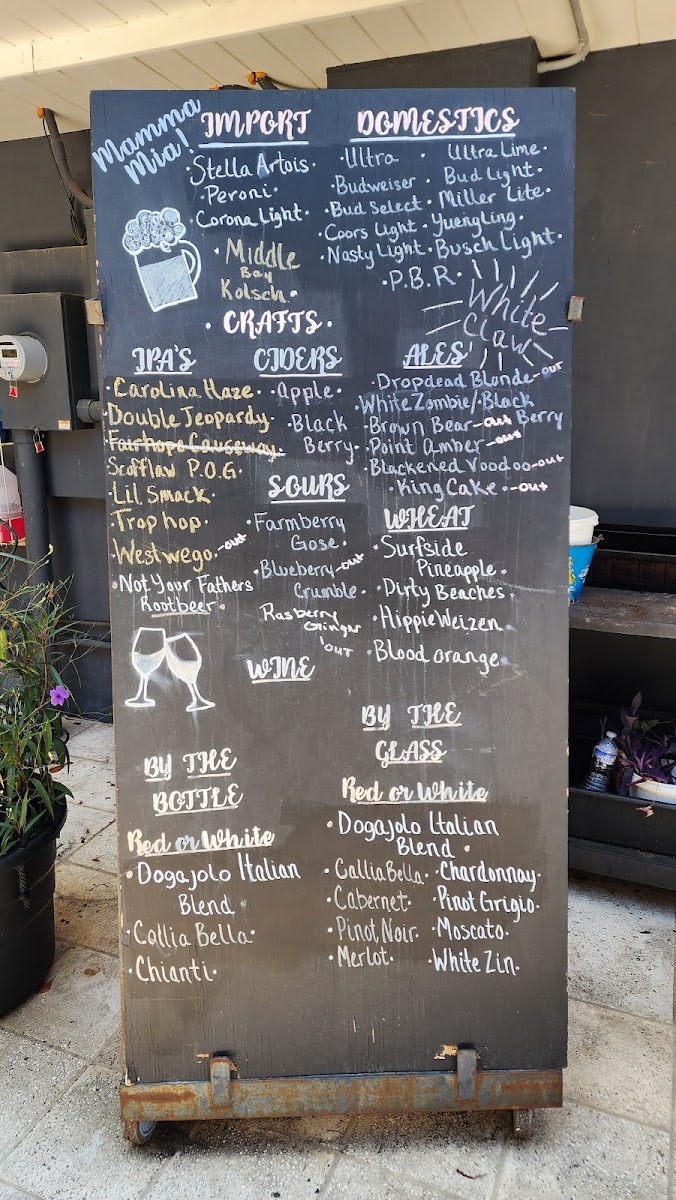 Mamma
Mia!
IMPORT
• Stella Artois •
• Peroni •
Corona Light •
• Middle
Bay
Kolsch •
DOMESTICS
• Ultra •
• Budweiser
• Bud Select •
Coors Light •
• Nasty Light •
Ultra Lime •
Bud Light •
Miller Lite •
Yuengling •
Busch Light •
• P.B.R •
White
Claw
• CRAFTS •
IPA'S
• Carolina Haze
Double Jeopardy •
• Fairhope Causeway •
Scofflaw P.O.G •
• Lil Smack •
• Trop hop •
• Westwego - out
• Not Your Fathers
Rootbeer •
CIDERS
• Apple •
• Black
Berry •
SOURS
• Farmberry
Gose •
• Blueberry - out
Crumble •
Rasberry
Ginger
out
ALES
• Dropdead Blonde - out
• White Zombie/• Black
Berry
• Brown Bear - out
• Point Amber - out
Blackened Voodoo - out
• King Cake • - out
WHEAT
• Surfside
Pineapple •
• Dirty Beaches •
• HippieWeizen •
• Blood orange •
WINE
BY THE
BOTTLE
Red or White
• Dogajolo Italian
Blend
• Collia Bella •
• Chianti •
BY THE
GLASS
Red or White
• Dogajolo Italian
Blend •
• Callia Bella •
• Cabernet •
• Pinot Noir •
• Merlot •
• Chardonnay •
• Pinot Grigio •
• Moscato •
• White Zin •